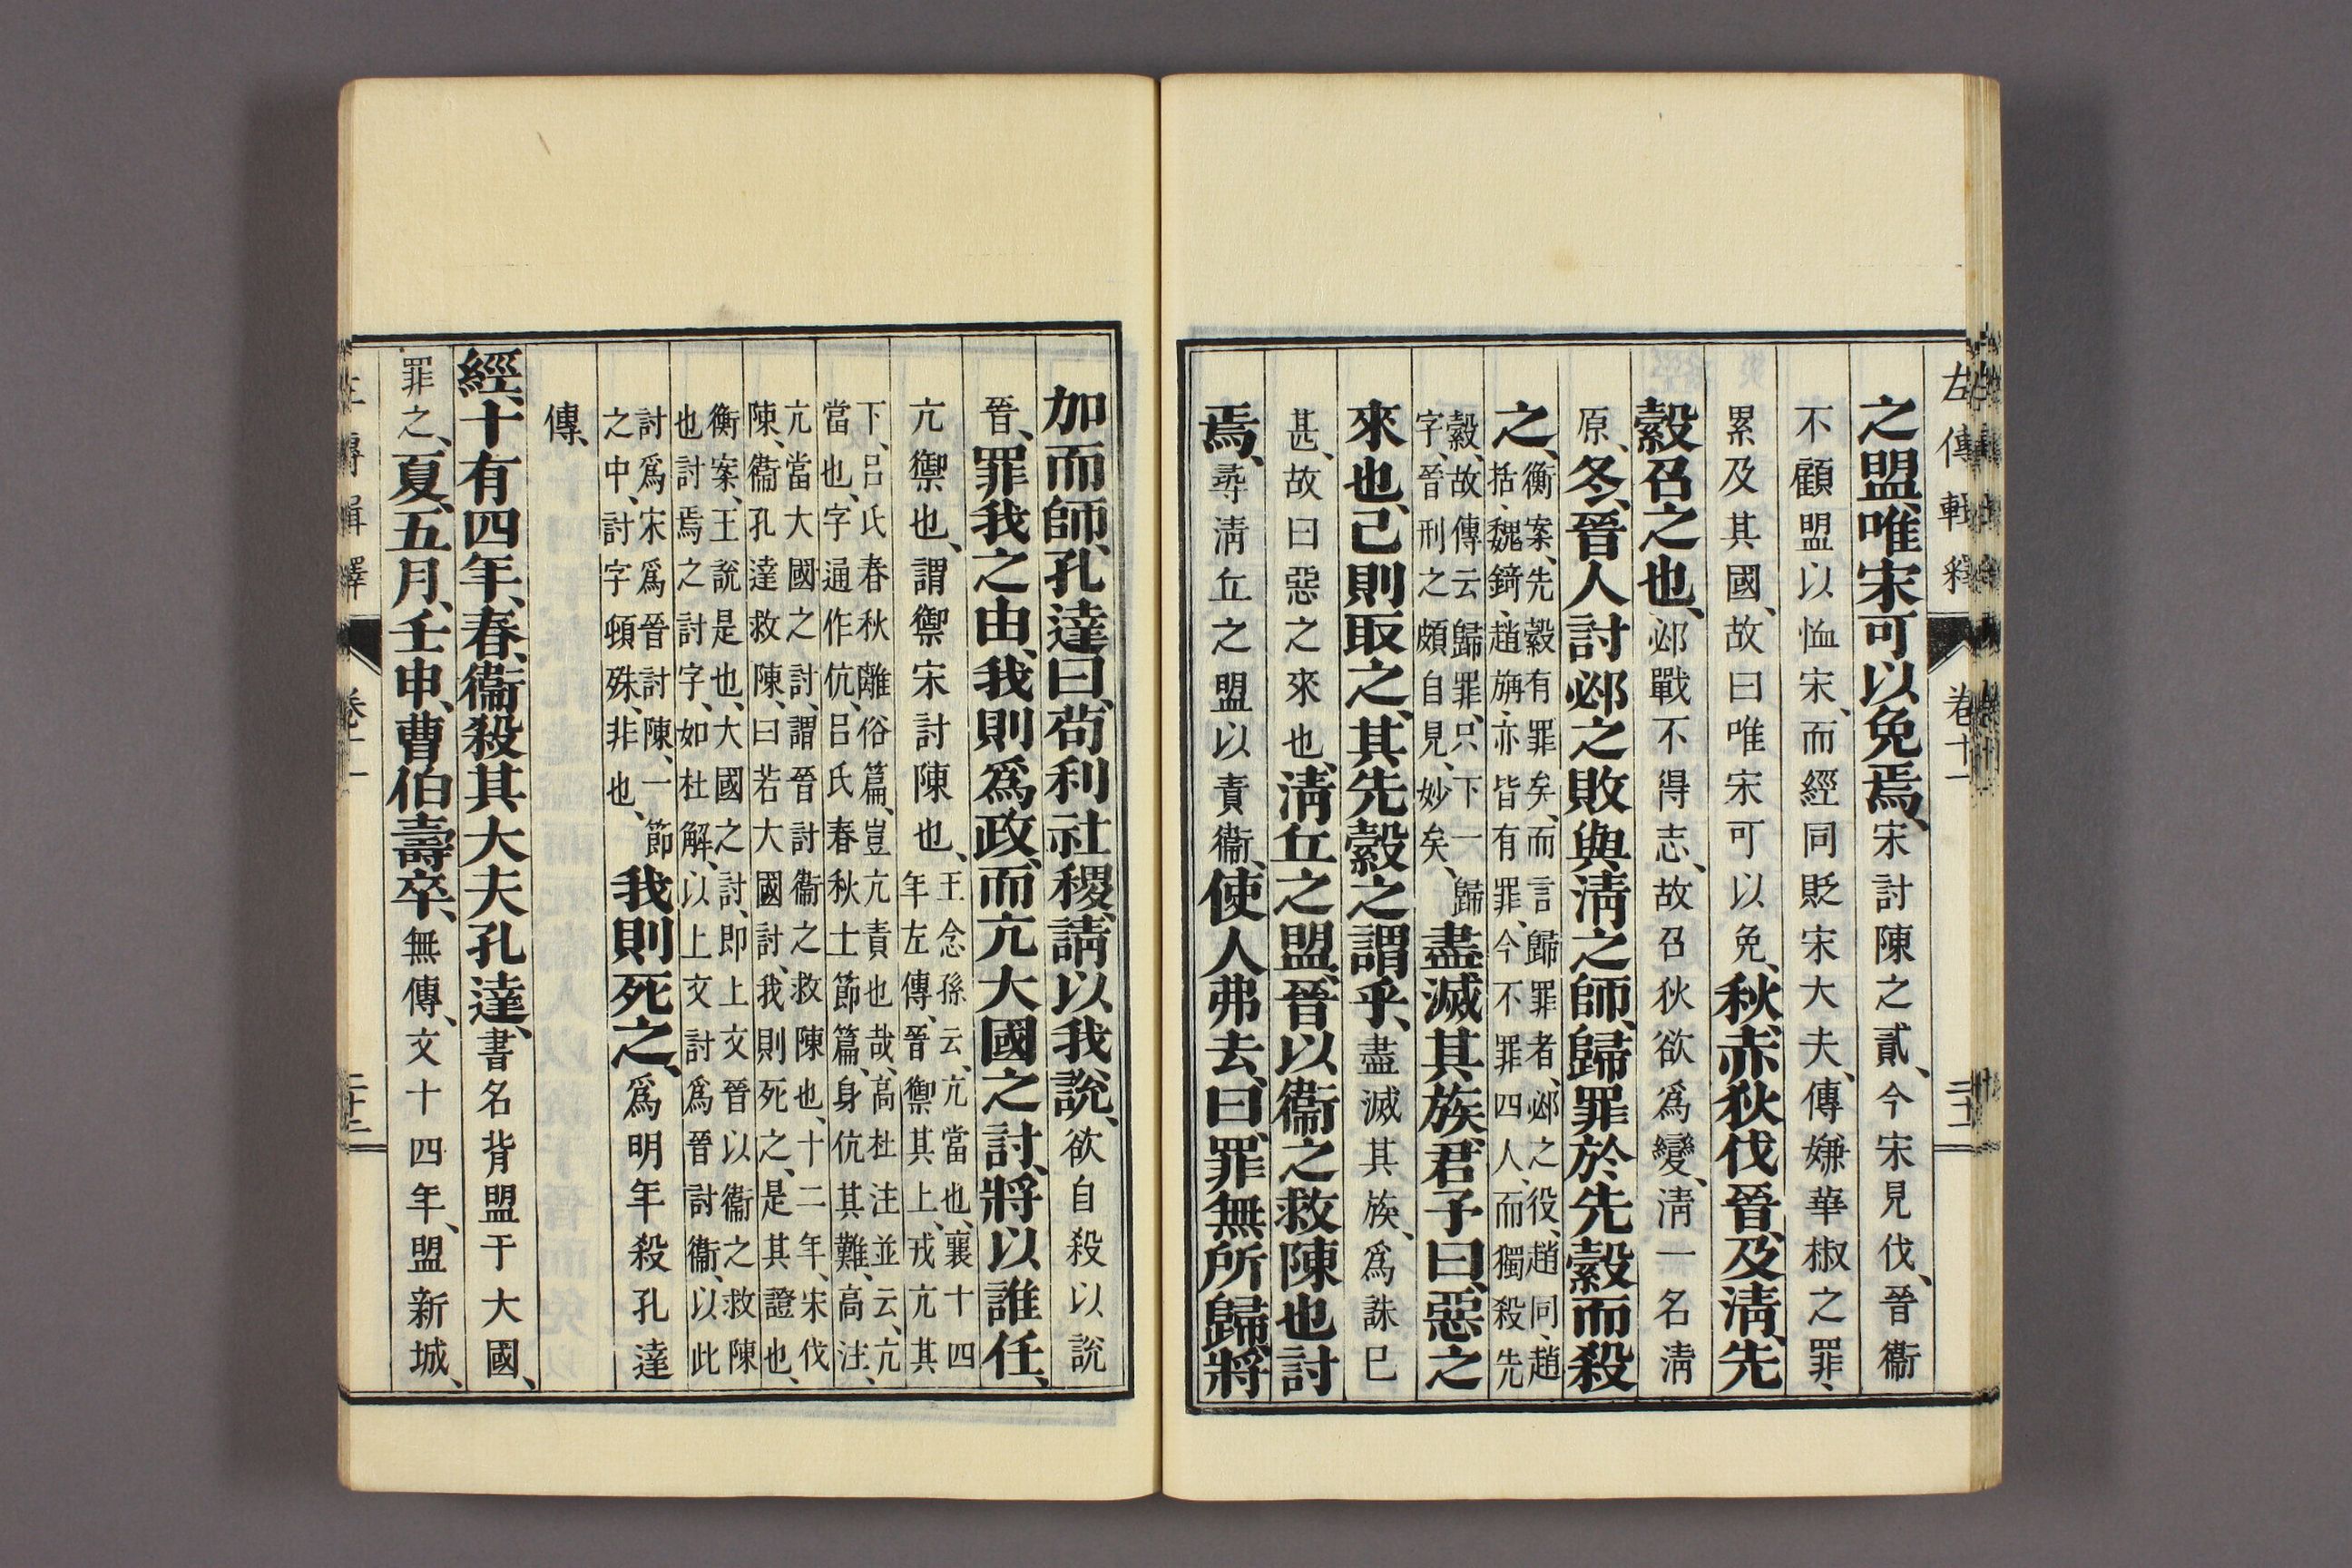 左傳輯釋 卷十一 二十二
之盟、唯宋可以免焉、宋討陳之貳、今宋見伐、晉衞
不顧盟以恤宋、而經同貶宋大夫、傳嫌華椒之罪、
累及其國、故曰唯宋可以免、秋、赤狄伐晉、及淸、先
縠召之也、邲戰不得志、故召狄欲爲變、淸一名淸
原、冬、晉人討邲之敗與淸之師、歸罪於先縠而殺
之、衡案、先縠有罪矣、而言歸罪者、邲之役、趙同、趙
括、魏錡、趙旃、亦皆有罪、今不罪四人、而獨殺先
縠、故傳云歸罪、只下一歸
字、晉刑之頗自見、妙矣、盡滅其族、君子曰、惡之
來也、己則取之、其先縠之謂乎、盡滅其族、爲誅已
甚、故曰惡之來也、淸丘之盟、晉以衞之救陳也討
焉、尋淸丘之盟以責衞、使人弗去、曰、罪無所歸、將
加而師、孔達曰、苟利社稷、請以我說、欲自殺以說
晉、罪我之由、我則爲政、而亢大國之討、將以誰任、
亢禦也、謂禦宋討陳也、王念孫云、亢當也、襄十四
年左傳、晉禦其上、戎亢其
下、呂氏春秋離俗篇、豈亢責也哉、高杜注並云、亢
當也、字通作伉、呂氏春秋士節篇、身伉其難、高注、
亢當大國之討、謂晉討衞之救陳也、十二年、宋伐
陳、衞孔達救陳、曰若大國討、我則死之、是其證也、
衡案、王說是也、大國之討、即上文晉以衞之救陳
也討焉之討字、如杜解、以上文討爲晉討衞、以此
討爲宋爲晉討陳、一節
之中、討字頓殊、非也、我則死之、爲明年殺孔達
傳、
經、十有四年、春、衞殺其大夫孔達、書名背盟于大國、
罪之、夏、五月、壬申、曹伯壽卒、無傳、文十四年、盟新城、
左傳輯釋 卷十一 二十二